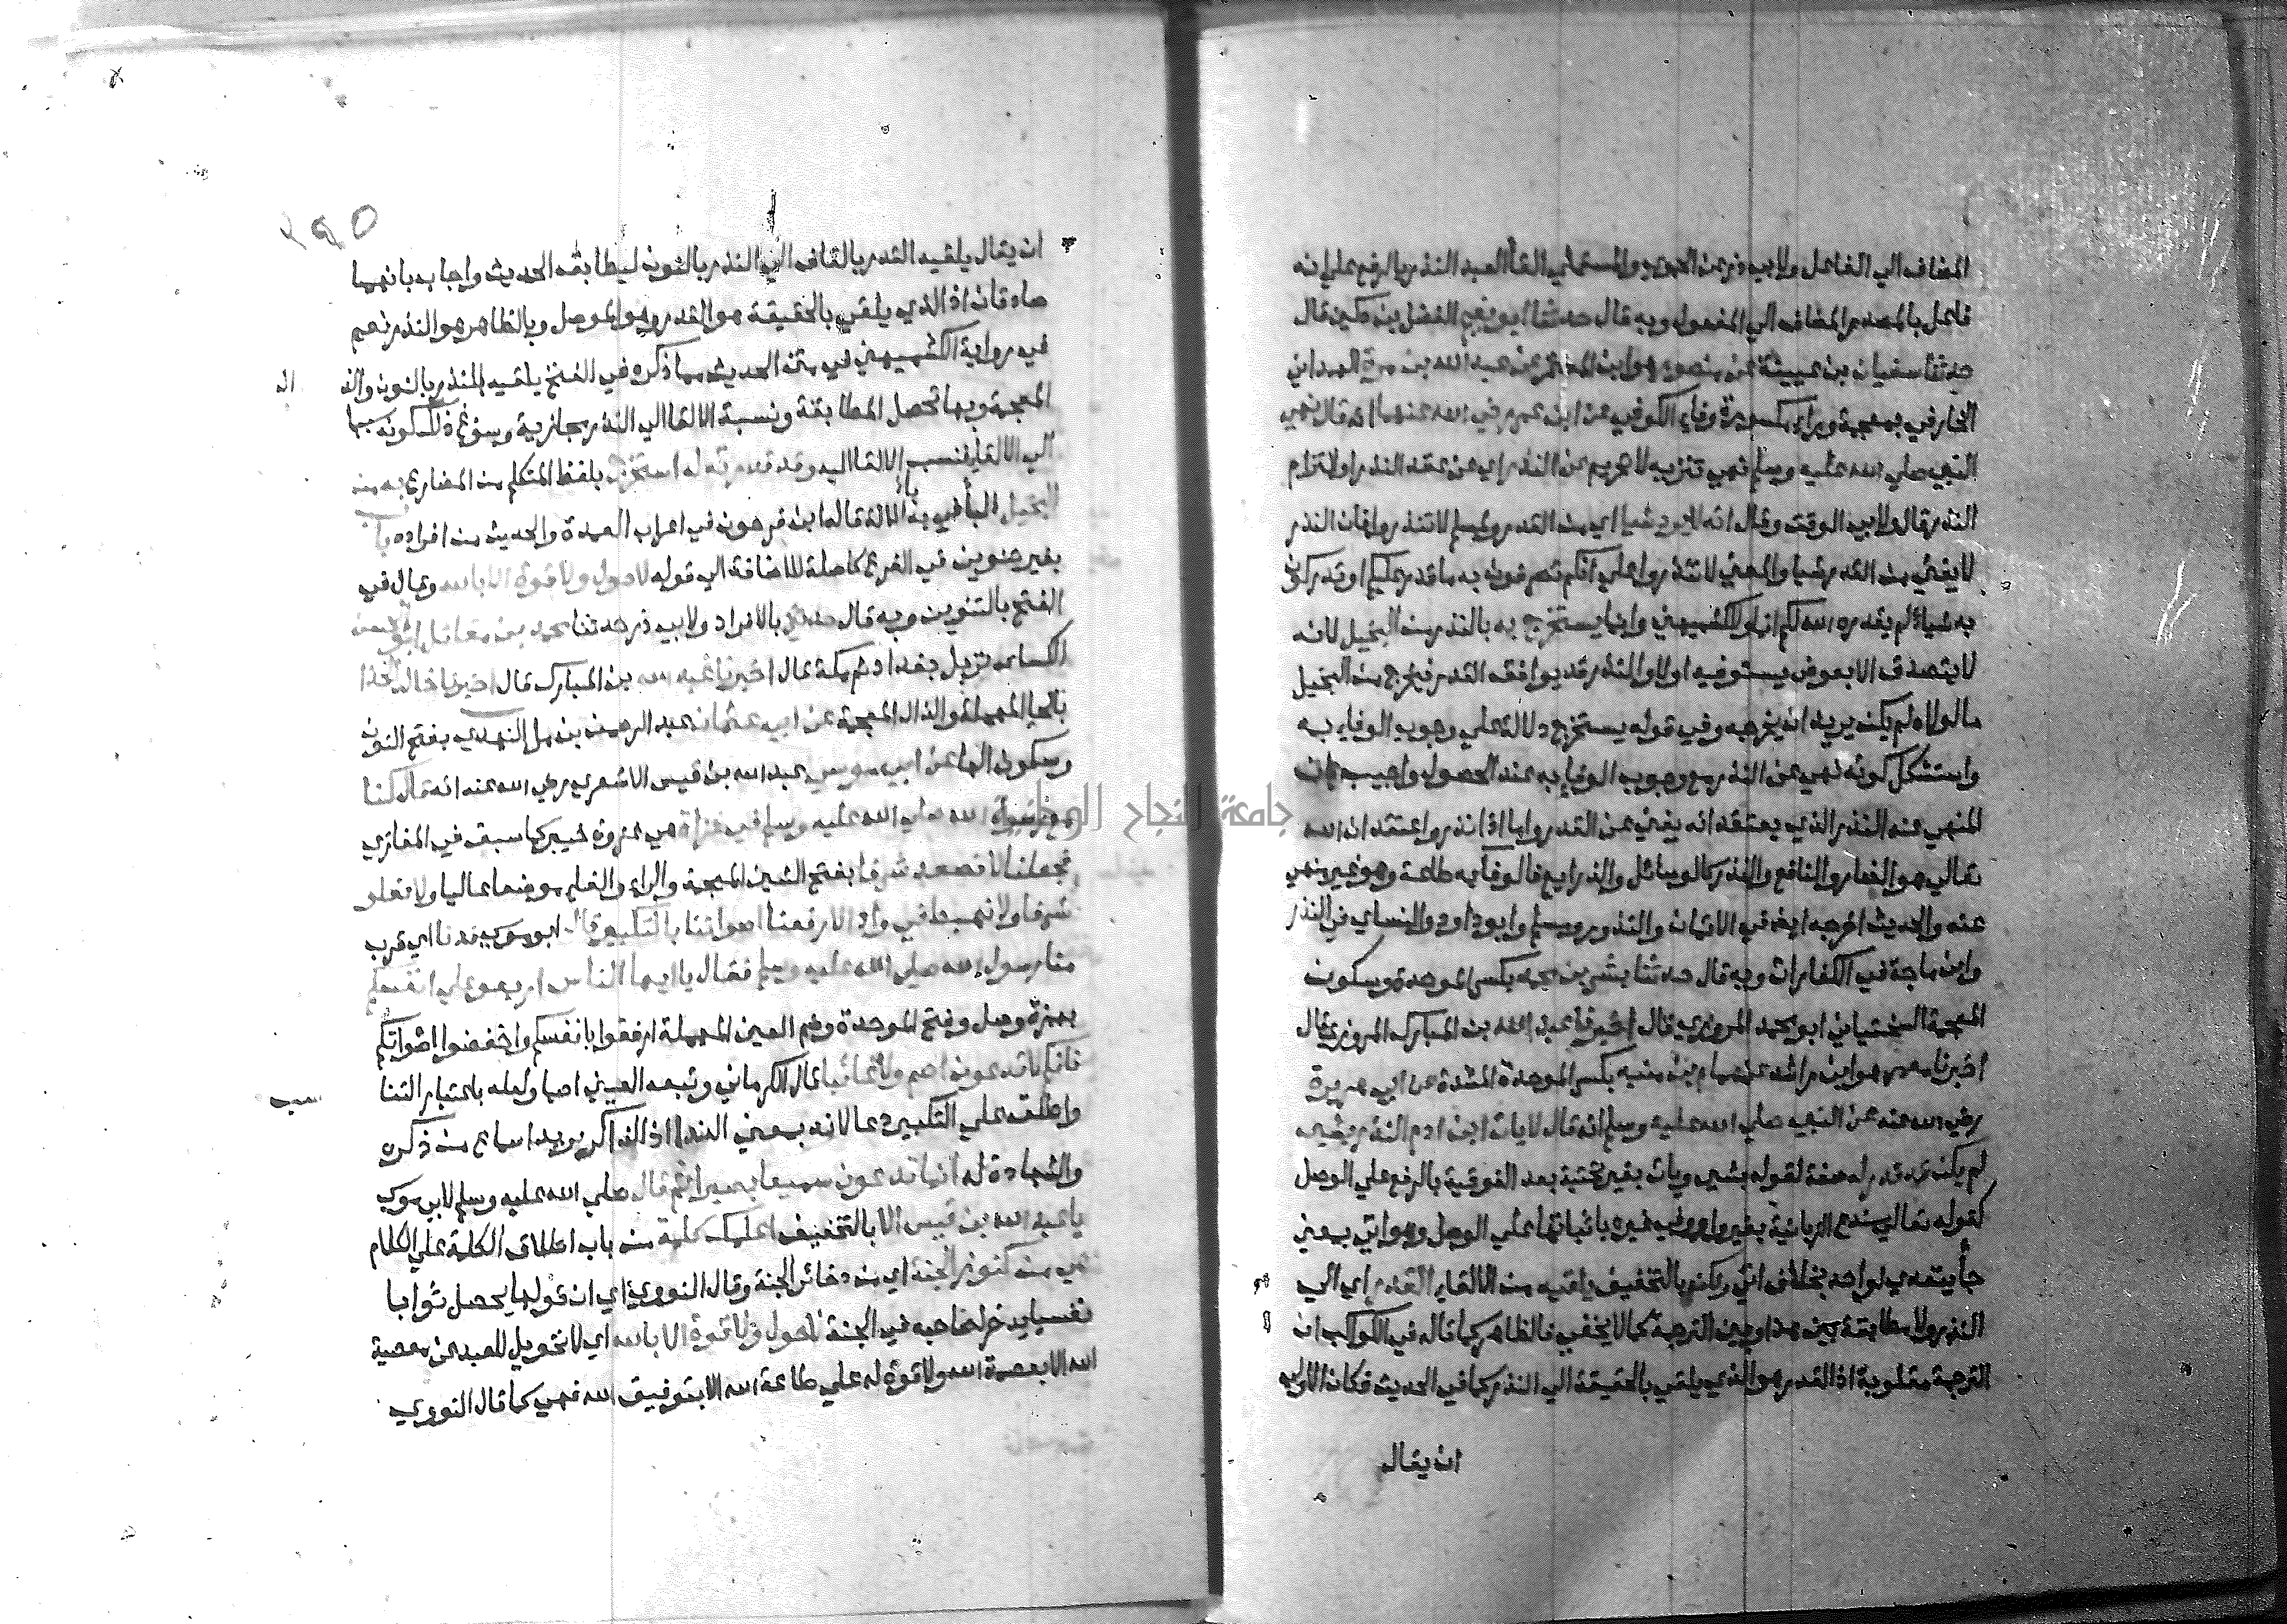 المضاف الي الفاعل ولابي ذر عن الحموي والمستملي القاالعبد النذر بالرفع علي انه
فاعل بالمصدر المضاف الي المفعول وبه قال حدثنا ابو نعيم الفضل بن دكين قال
حدثنا سفيان بن عيينة عن منصور هو ابن المعتمر عن عبد الله بن مرة الهمداني
الخارفي بمعجمة وراء مكسورة وفاء الكوفي عن ابن عمر رضي الله عنهما انه قال نهي
النبي صلي الله عليه وسلم نهي تنزيه لا تحريم عن النذر اي عن عقد النذر او التزام
النذر قال ولابي الوقت وقال انه لا يرد شيا اي من القدر ولمسلم لا تنذروا فان النذر
لا يغني من القدر شيا والمعني لا تنذروا علي انكم تصرفون به ما قدر عليكم او تدركون
به شيا لم يقدره الله لكم انما وللكشميهني وانما يستخرج به بالنذر من البخيل لانه
لا يتصدق الا بعوض يستوفيه اولا والنذر قد يوافقه القدر فيخرج من البخيل
ما لولاه لم يكن يريد ان يخرجه وفي قوله يستخرج دلالة علي وجوب الوفاء به
واستشكل كونه نهي عن النذر مع وجوب الوفاء به عند الحصول واجيب بان
المنهي عنه النذر الذي يعتقد انه يغني عن القدر واما اذا نذر واعتقد ان الله
تعالي هو الضار والنافع والنذر كالوسائل والذرايع فالوفا به طاعة وهو غير منهي
عنه والحديث اخرجه ايضا في الايمان والنذور ومسلم وابو داود والنساي في النذر
وابن ماجة في الكفارات وبه قال حدثنا بشر بن محمد بكسر الموحدة وسكون
المعجمة السختياني ابو محمد المروزي قال اخبرنا عبد الله بن المبارك المروزي قال
اخبرنا معمر هو ابن راشد عن همام بن منبه بكسر الموحدة المشددة عن ابي هريرة
رضي الله عنه عن النبي صلي الله عليه وسلم انه قال لا يات ابن ادم النذر بشي
لم يكن قد قدر له صفة لقوله بشي ويات بغير تحتية بعد الفوقية بالرفع علي الوصل
كقوله تعالي سندع الزبانية بغير واو وفي غيره باثباتها علي الوصل وهو اتي بمعني
جا يتعدي لواحد بخلاف اتي ولكن بالتخفيف يلقيه من الالقاء القدر اي الي
النذر ولا مطابقة بين هذا وبين الترجمة كما لا يخفي فالظاهر كما قاله في الكواكب ان
الترجمة مقلوبة اذ القدر هو الذي يلقي بالحقيقة الي النذر كما في الحديث فكان الاولي
ان يقال
٢٩٥
ان يقال يلقيه القدر بالقاف الي النذر بالنون ليطابق الحديث واجاب بانهما
صادقان اذ الذي يلقي بالحقيقة هو القدر وهو الموصل وبالظاهر هو النذر نعم
في رواية الكشميهني في متن الحديث مما ذكره في الفتح يلقيه النذر بالنون والذ
ال
المعجمة وبها تحصل المطابقة ونسبة الالقا الي النذر مجازية وسوغ ذلك كونه سببا
الي الالقاء فنسب الالقا اليه وقد قدم قوله استخرج بلفظ المتكلم من المضارع به من
البخيل قاله ابن فرحون في اعراب العمدة والحديث من افراده با
بغير تنوين في الفرع كاصله للاضافة الي قوله لا حول ولا قوة الا بالله وقال في
الفتح بالتنوين وبه قال حدثني بالافراد ولابي ذر حدثنا محمد بن مقاتل ابو الحسن
الكساي نزيل بغداد ثم مكة قال اخبرنا عبد الله بن المبارك قال اخبرنا خالد الحذا
بالحا المهملة والذال المعجمة عن ابي عثمان عبد الرحمن بن مل النهدي بفتح النون
وسكون الها عن ابي موسي عبد الله بن قيس الاشعري رضي الله عنه انه قال كنا
مع رسول الله صلي الله عليه وسلم في غزاة هي غزوة خيبر كما سبق في المغازي
فجعلنا لا نصعد شرفا بفتح الشين المعجمة والراء والفاء موضعا عاليا ولا نعلو
شرفا ولا نهبط في واد الا رفعنا اصواتنا بالتكبير قال ابو موسي فدنا اي قرب
منا رسول الله صلي الله عليه وسلم فقال يا ايها الناس اربعوا علي انفسكم
بهمزة وصل وفتح الموحدة وضم العين المهملة ارفقوا بانفسكم واخفضوا اصواتكم
فانكم لا تدعون اصم ولا غائبا قال الكرماني وتبعه العيني اصما ولعله باعتبار التنا
سب
واطلق علي التكبير دعا لانه بمعني الندا اذ الذاكر يريد اسماع من ذكره
والشهادة له انما تدعون سميعا بصيرا ثم قال صلي الله عليه وسلم لابي موسي
يا عبد الله بن قيس الا بالتخفيف اعلمك كلمة من باب اطلاق الكلمة علي الكلام
هي من كنوز الجنة اي من دخائر الجنة وقال النووي اي ان قولها يحصل ثوابا
نفيسا يدخر لصاحبه في الجنة لا حول ولا قوة الا بالله اي لا تحويل للعبد عن معصية
الله الا بعصمة الله ولا قوة له علي طاعة الله الا بتوفيق الله فهي كما قال النووي
جامعة النجاح الوطنية